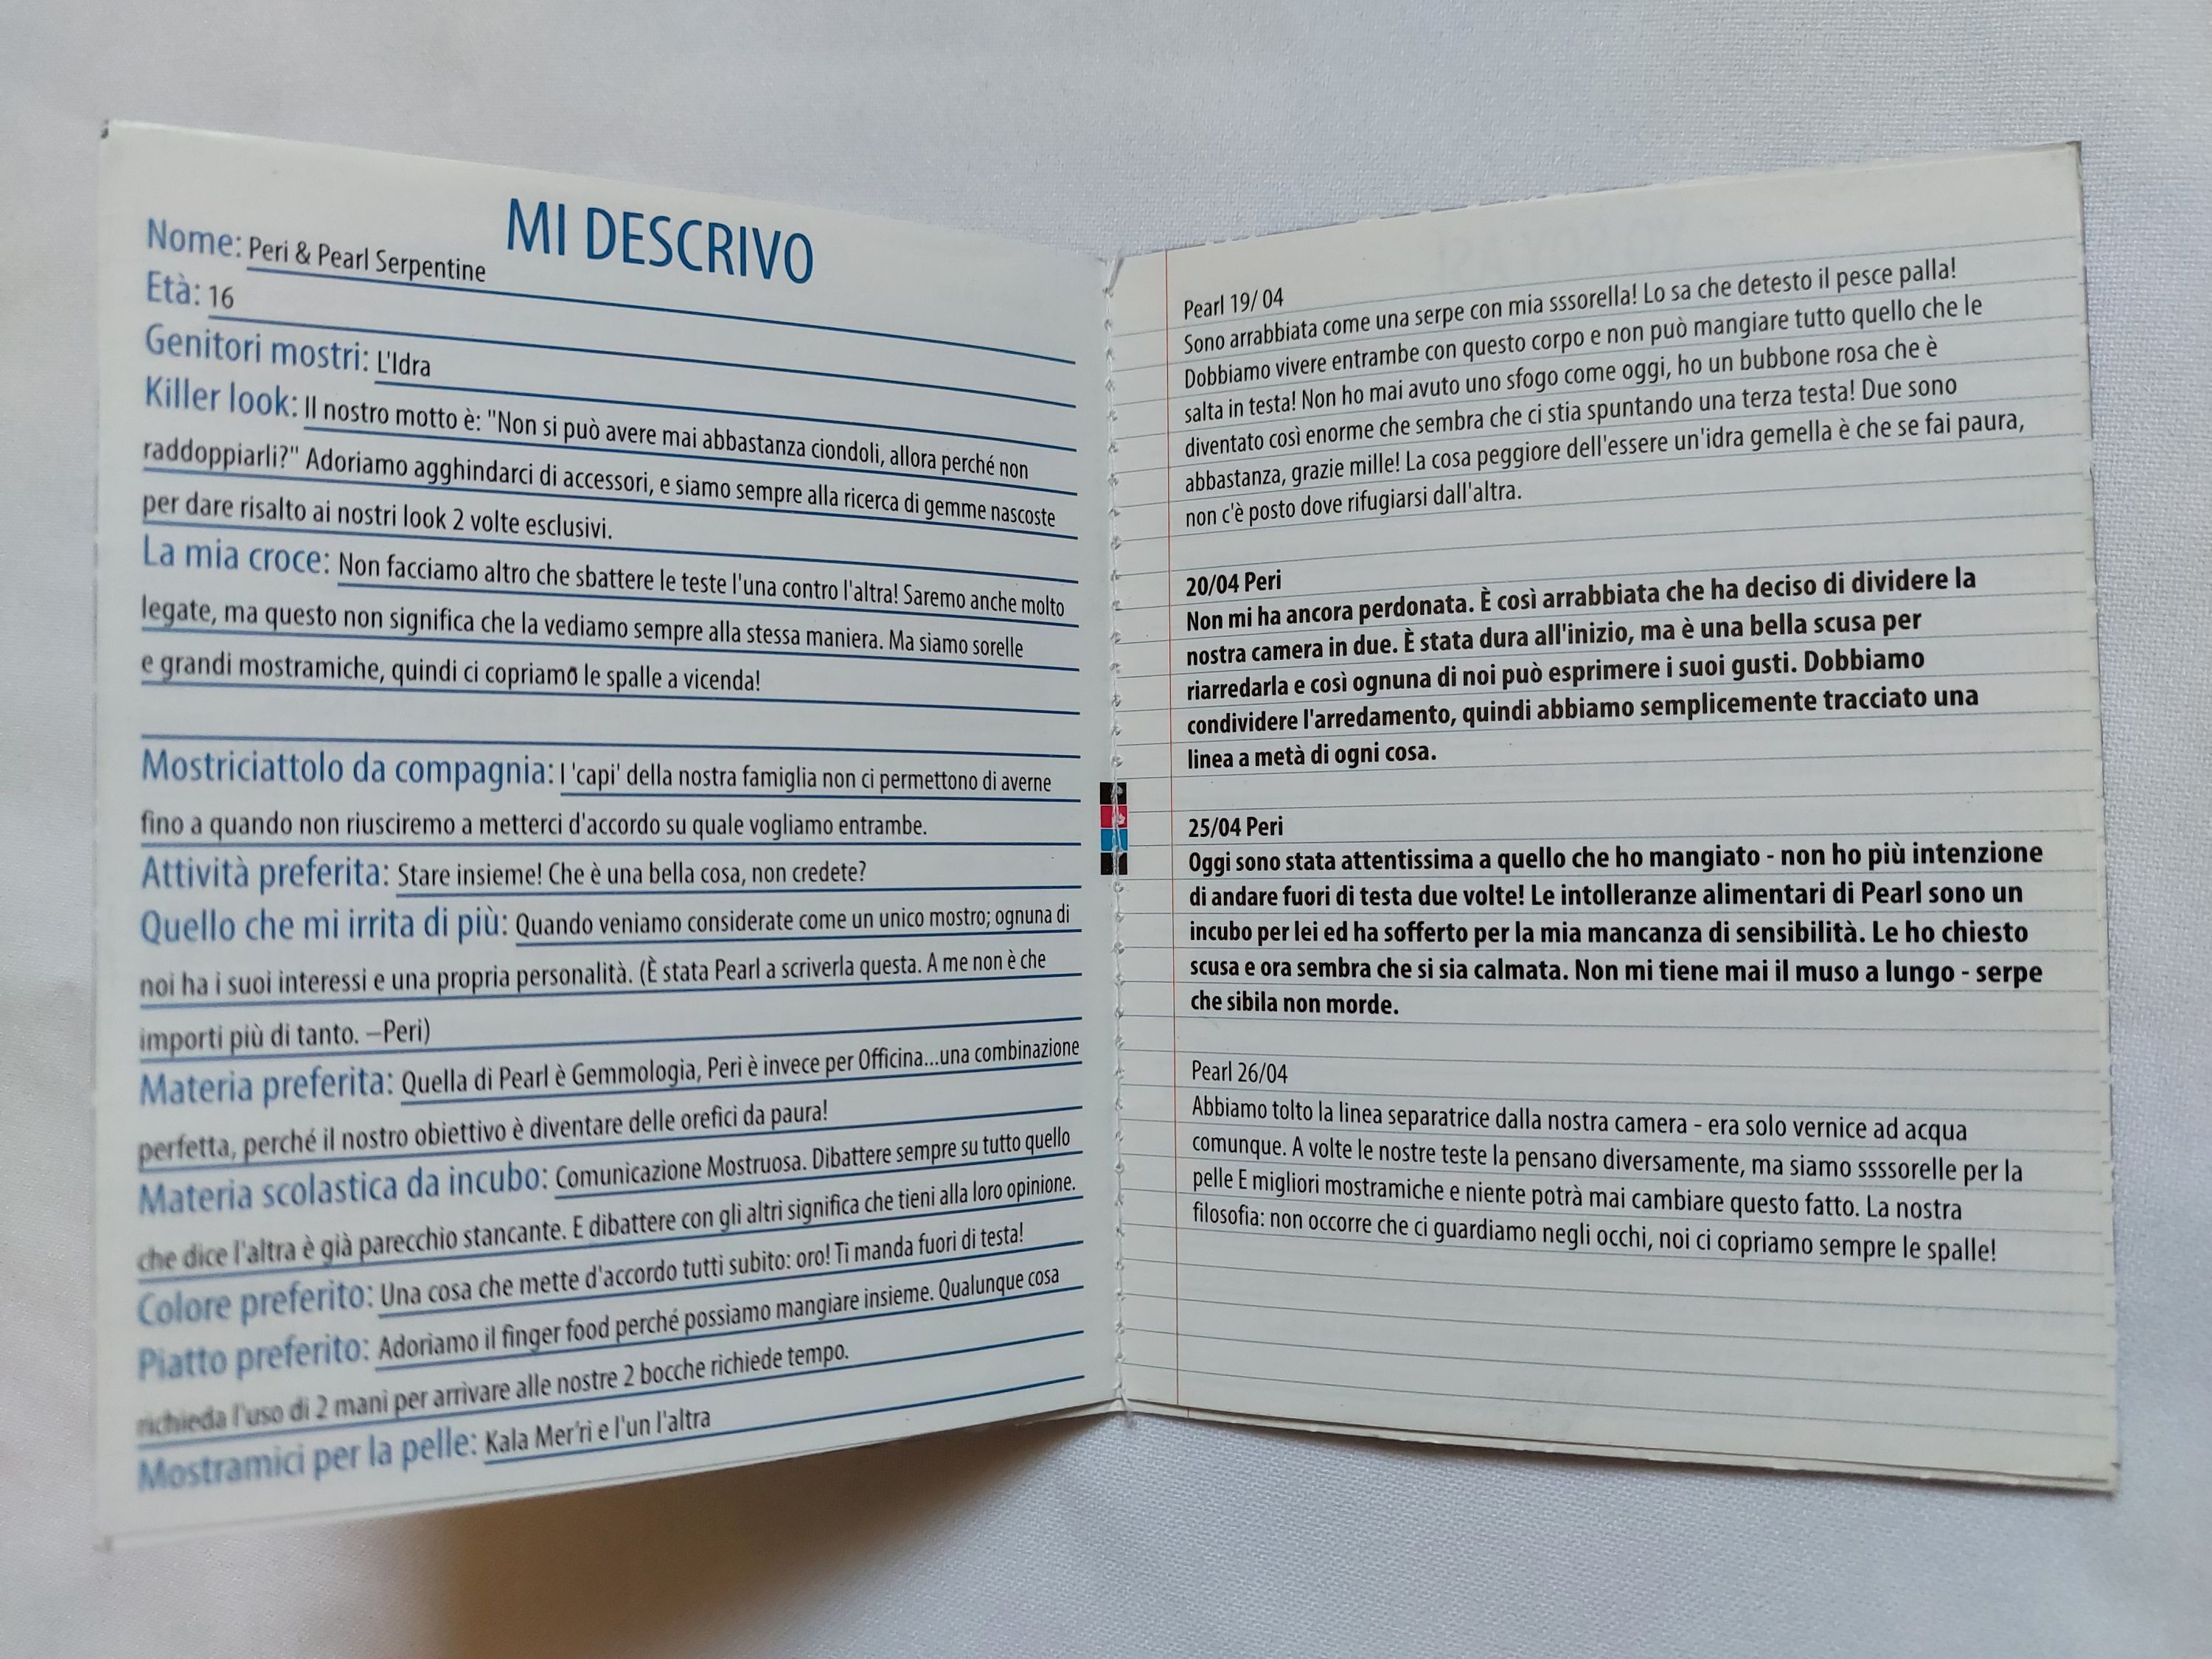 MI DESCRIVO
Nome: Peri & Pearl Serpentine
Età: 16
Genitori mostri: L'Idra
Killer look: Il nostro motto è: "Non si può avere mai abbastanza ciondoli, allora perché non
raddoppiarli?" Adoriamo agghindarci di accessori, e siamo sempre alla ricerca di gemme nascoste
per dare risalto ai nostri look 2 volte esclusivi.
La mia croce: Non facciamo altro che sbattere le teste l'una contro l'altra! Saremo anche molto
legate, ma questo non significa che la vediamo sempre alla stessa maniera. Ma siamo sorelle
e grandi mostramiche, quindi ci copriamo le spalle a vicenda!
Mostriciattolo da compagnia: I 'capi' della nostra famiglia non ci permettono di averne
fino a quando non riusciremo a metterci d'accordo su quale vogliamo entrambe.
Attività preferita: Stare insieme! Che è una bella cosa, non credete?
Quello che mi irrita di più: Quando veniamo considerate come un unico mostro; ognuna di
noi ha i suoi interessi e una propria personalità. (È stata Pearl a scriverla questa. A me non è che
importi più di tanto. –Peri)
Materia preferita: Quella di Pearl è Gemmologia, Peri è invece per Officina...una combinazione
perfetta, perché il nostro obiettivo è diventare delle orefici da paura!
Materia scolastica da incubo: Comunicazione Mostruosa. Dibattere sempre su tutto quello
che dice l'altra è già parecchio stancante. E dibattere con gli altri significa che tieni alla loro opinione.
Colore preferito: Una cosa che mette d'accordo tutti subito: oro! Ti manda fuori di testa!
Piatto preferito: Adoriamo il finger food perché possiamo mangiare insieme. Qualunque cosa
richieda l'uso di 2 mani per arrivare alle nostre 2 bocche richiede tempo.
Mostramici per la pelle: Kala Mer'ri e l'un l'altra
Pearl 19/ 04
Sono arrabbiata come una serpe con mia sssorella! Lo sa che detesto il pesce palla!
Dobbiamo vivere entrambe con questo corpo e non può mangiare tutto quello che le
salta in testa! Non ho mai avuto uno sfogo come oggi, ho un bubbone rosa che è
diventato così enorme che sembra che ci stia spuntando una terza testa! Due sono
abbastanza, grazie mille! La cosa peggiore dell'essere un'idra gemella è che se fai paura,
non c'è posto dove rifugiarsi dall'altra.
20/04 Peri
Non mi ha ancora perdonata. È così arrabbiata che ha deciso di dividere la
nostra camera in due. È stata dura all'inizio, ma è una bella scusa per
riarredarla e così ognuna di noi può esprimere i suoi gusti. Dobbiamo
condividere l'arredamento, quindi abbiamo semplicemente tracciato una
linea a metà di ogni cosa.
25/04 Peri
Oggi sono stata attentissima a quello che ho mangiato - non ho più intenzione
di andare fuori di testa due volte! Le intolleranze alimentari di Pearl sono un
incubo per lei ed ha sofferto per la mia mancanza di sensibilità. Le ho chiesto
scusa e ora sembra che si sia calmata. Non mi tiene mai il muso a lungo - serpe
che sibila non morde.
Pearl 26/04
Abbiamo tolto la linea separatrice dalla nostra camera - era solo vernice ad acqua
comunque. A volte le nostre teste la pensano diversamente, ma siamo ssssorelle per la
pelle E migliori mostramiche e niente potrà mai cambiare questo fatto. La nostra
filosofia: non occorre che ci guardiamo negli occhi, noi ci copriamo sempre le spalle!